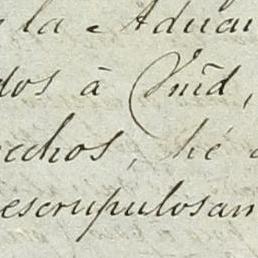 la Aduan
dos á Vm̃d,
echos, hé
escrupulosam